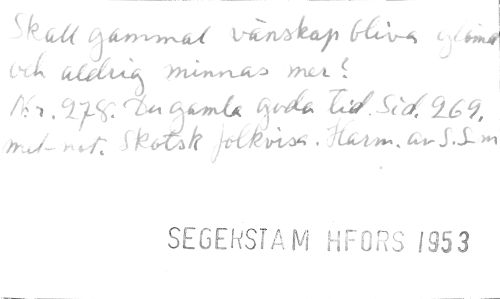 Skall gammal vänskap bliva glömd
och aldrig minnas mer!
N:r. 278. Du gamla goda tid. Sid. 269.
mel-not. Skotsk folkvisa. Harm. av S. S-m
SEGERSTAM HFORS 1953